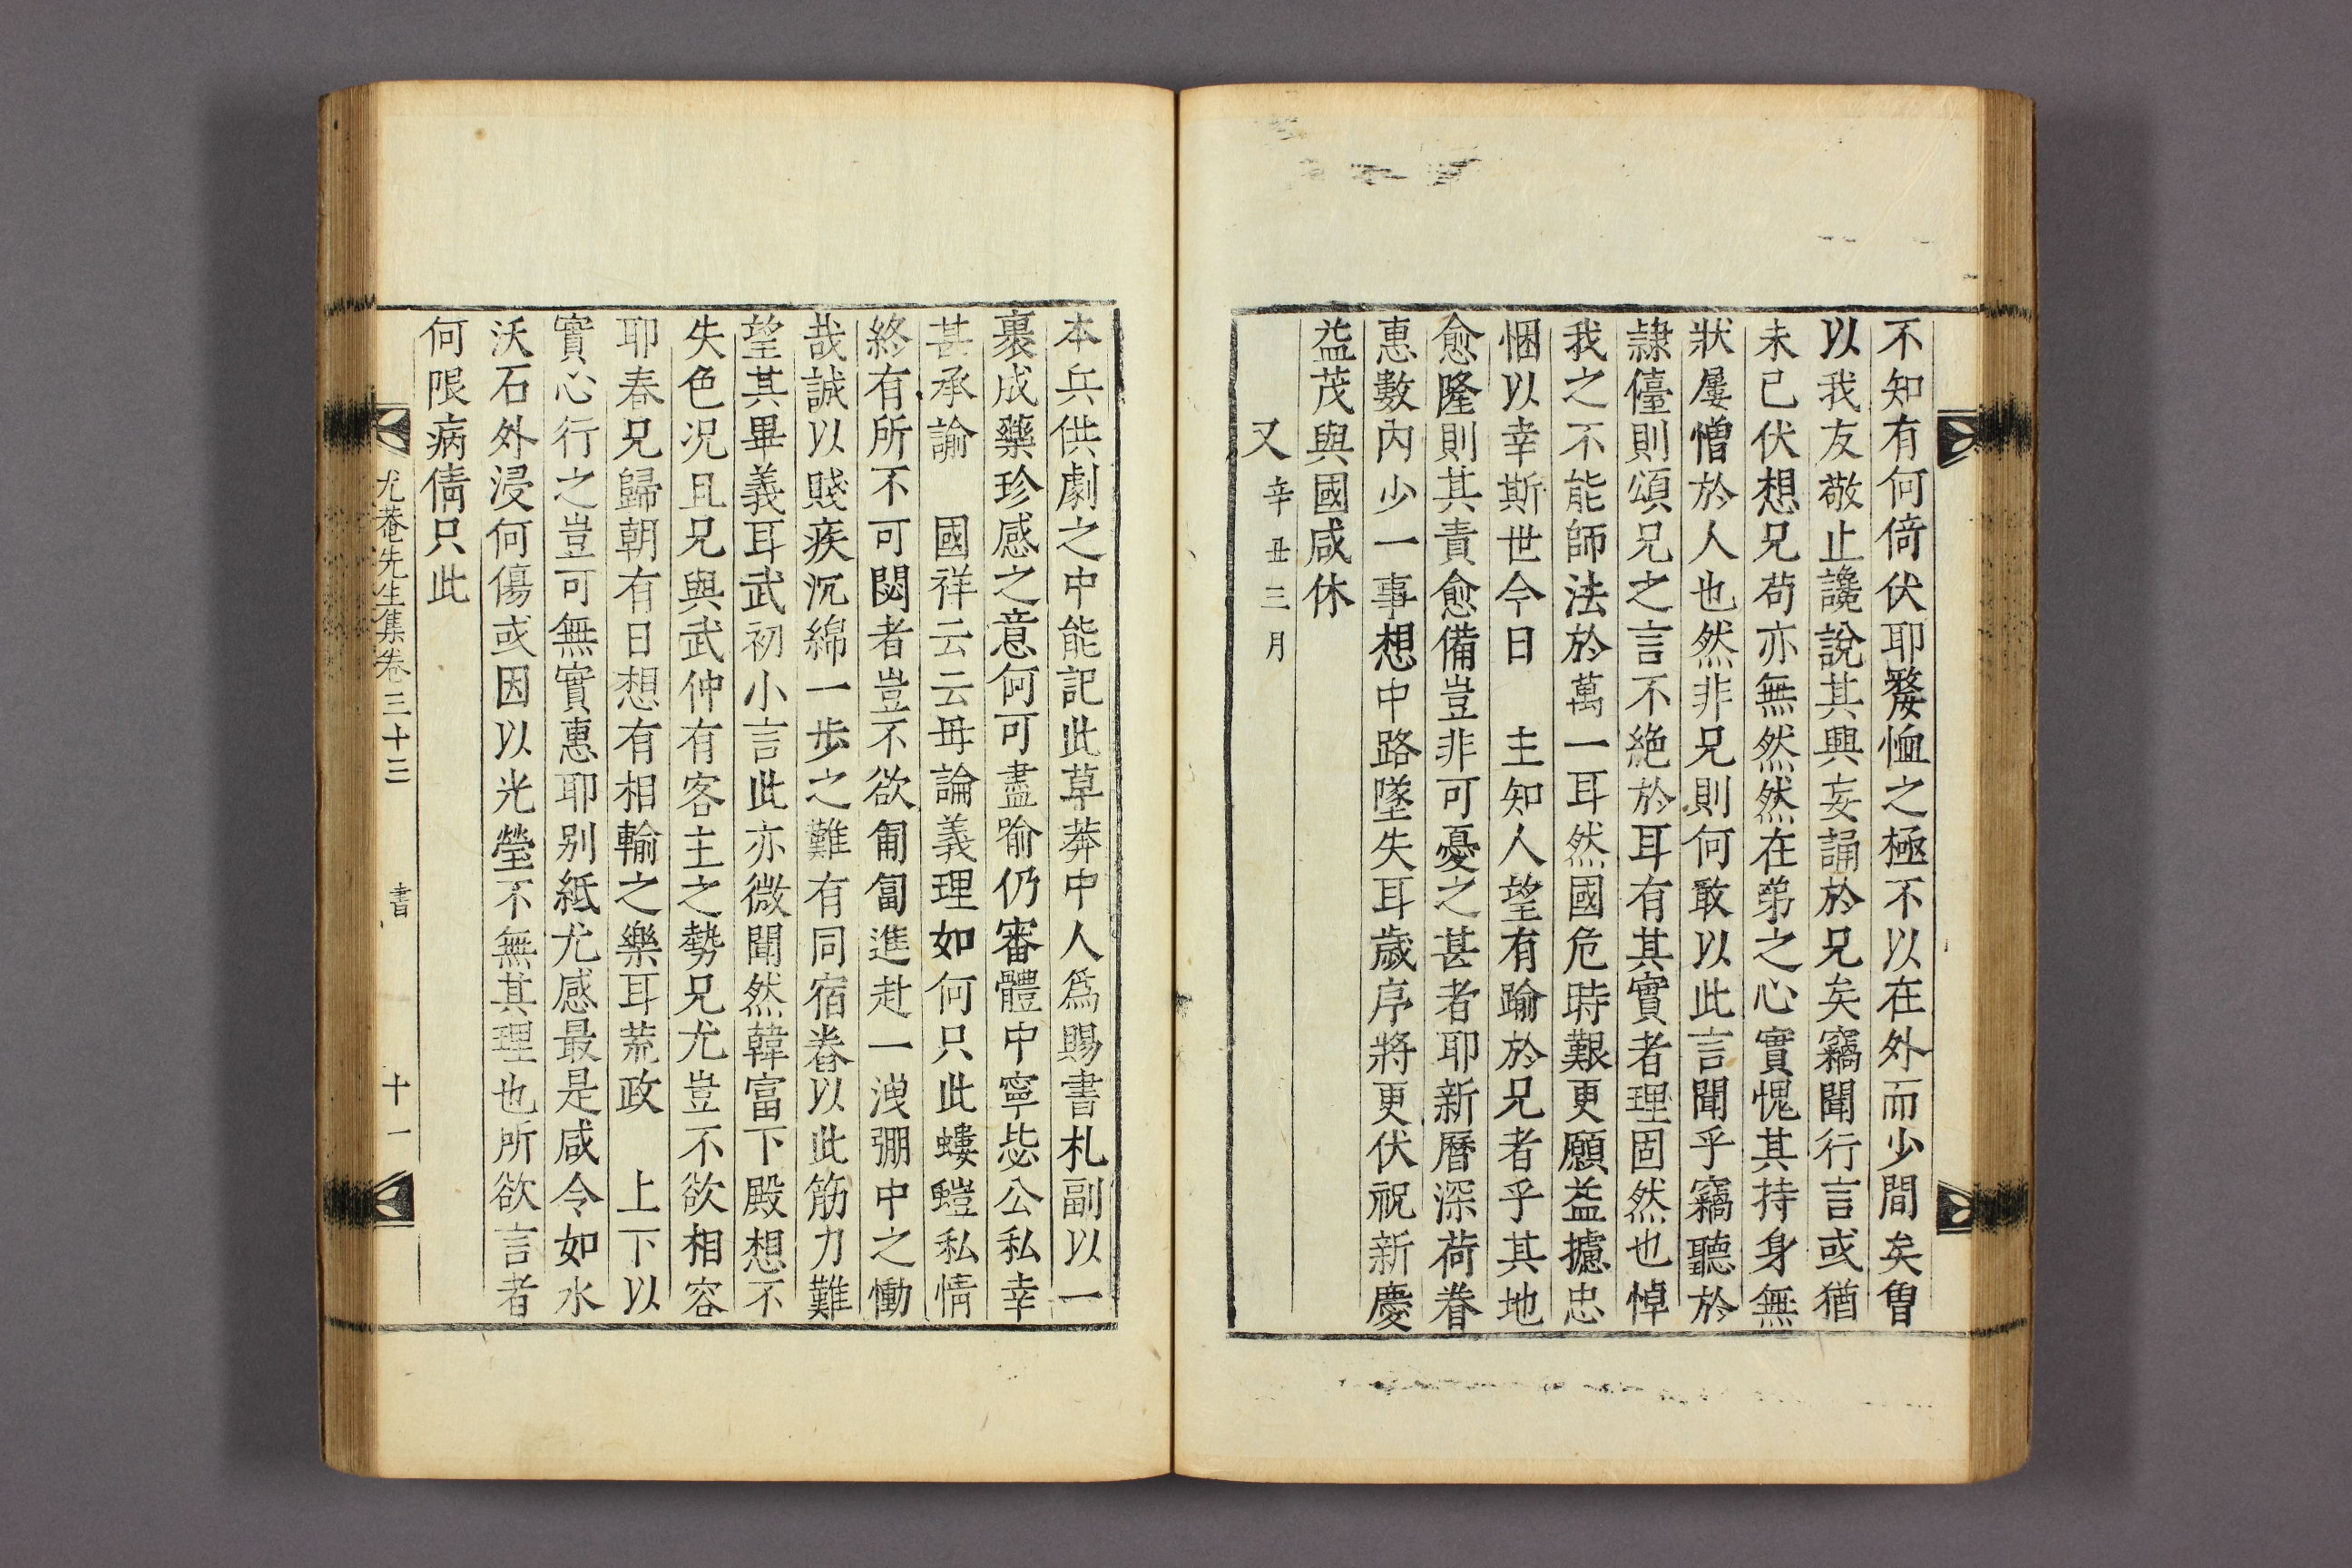 不知有何倚伏耶嫠恤之極不以在外而少間矣曾
以我友敬止讒說其興妄誦於兄矣竊聞行言或猶
未已伏想兄苟亦無然然在弟之心實愧其持身無
狀屢憎於人也然非兄則何敢以此言聞乎竊聽於
隷儓則頌兄之言不絶於耳有其實者理固然也悼
我之不能師法於萬一耳然國危時艱更願益攄忠
悃以幸斯世今日 主知人望有踰於兄者乎其地
愈隆則其責愈備豈非可憂之甚者耶新曆深荷眷
惠數內少一事想中路墜失耳歲序將更伏祝新慶
益茂與國咸休
又 辛丑三月
本兵供劇之中能記此草莽中人爲賜書札副以一
裹成藥珍感之意何可盡喩仍審體中寧毖公私幸
甚承諭 國祥云云毋論義理如何只此螻螘私情
終有所不可閟者豈不欲匍匐進赴一洩弸中之慟
哉誠以賤疾沉綿一步之難有同宿春以此筋力難
望其畢義耳武初小言此亦微聞然韓富下殿想不
失色况且兄與武仲有客主之勢兄尤豈不欲相容
耶春兄歸朝有日想有相輸之樂耳荒政 上下以
實心行之豈可無實惠耶別紙尤感最是咸令如水
沃石外浸何傷或因以光瑩不無其理也所欲言者
何限病倩只此
尤菴先生集卷三十三 書 十一